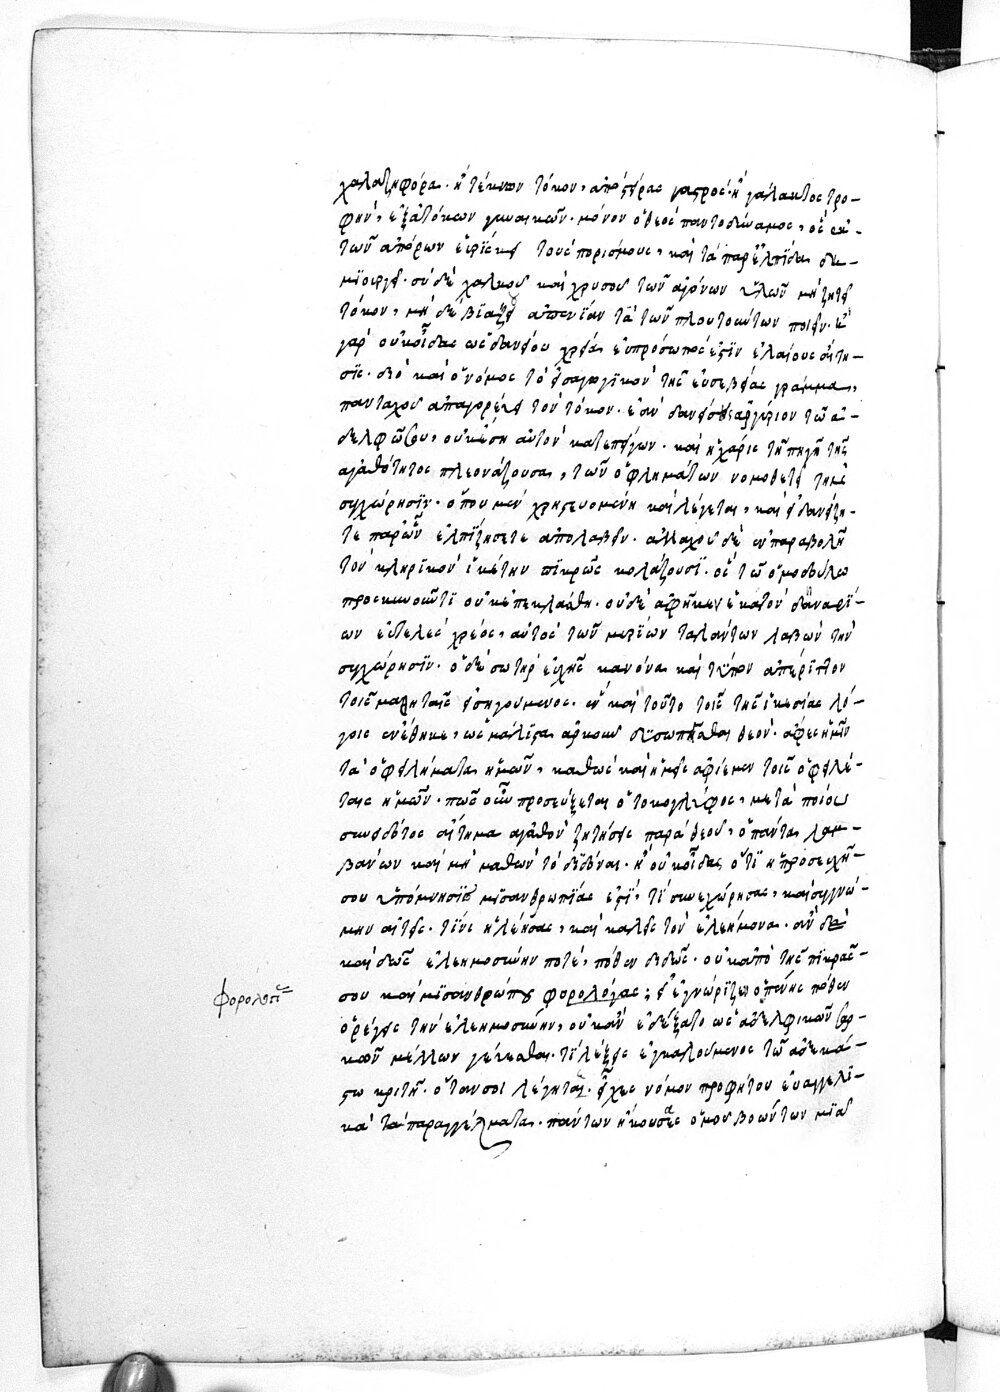 χαλαζηφόρα. ἢ τέκνων τόκον, ἀπὸ στείρας γαστρός. ἢ γάλακτος τρο-
φὴν, ἐξ ἀτόκων γυναικῶν. μόνον ὁ θεὸς παντοδύναμος, ὃς ἐκ
τῶν ἀπόρων εὑρίσκει τοὺς πορισμοὺς, καὶ τὰ παρ ἐλπίδα δη-
μιουργεῖ. σὺ δὲ χαλκοῦ καὶ χρυσοῦ τῶν ἀγόνων ὑλῶν μὴ ζητεῖ
τόκον, μὴ δὲ βιάζῃ ἀπενίαν τὰ τῶν πλουτούντων ποιεῖν. ἢ
γὰρ οὐκ οἶδας ὡς δανείου χρεία εὐπρόσωπός ἐστιν ἐλαίους αἴτη-
σις. διὸ καὶ ὁ νόμος τὸ εἰσαγωγικὸν τῆς εὐσεβείας γράμμα,
πανταχοῦ ἀπαγορεύει τὸν τόκον. ἐὰν δανείσῃς ἀργύριον τῷ ἀ-
δελφῷ σου, οὐκ ἔσῃ αὐτὸν κατεπείγων. καὶ ἡ χάρις τῇ πηγῇ τῆς
ἀγαθότητος πλεονάζουσα, τῶν ὀφλημάτων νομοθετεῖ τὴν
συγχώρησιν. ὅπου μὲν χρηστευομένη καὶ λέγεται, καὶ εἰ δανείζη-
τε παρ ὧν ἐλπίζησετε ἀπολαβεῖν. ἀλλαχοῦ δὲ ἐν παραβολῇ
τὸν κληρικὸν ἱκέτην πικρῶς κολάζουσι. ὃς τῷ ὁμοδούλῳ
προσκυνοῦντι οὐκ ἐπεκλάσθη. οὐδὲ ἀφῆκεν ἑκατὸν δαναρί-
ων εὐτελὲς χρέος, αὐτὸς τῶν μυρίων ταλάντων λαβὼν τὴν
συγχώρησιν. ὁ δὲ σωτὴρ εὐχῆς κανόνα καὶ τύπον ἀπέριττον
τοῖς μαθηταῖς εἰσηγούμενος. ἓν καὶ τοῦτο τοῖς τῆς ἱκεσίας λό-
γοις ἐνέθηκε, ὡς μάλιστα ἀρκοῦν δυσωπῆσαι θεὸν. ἄφες ἡμῖν
τὰ ὀφειλήματα ἡμῶν, καθὼς καὶ ἡμεῖς ἀφίεμεν τοῖς ὀφειλέ-
ταις ἡμῶν. πῶς οὖν προσεύξεται ὁ τοκογλύφος, μετὰ ποίου
συνειδότος αἴτημα ἀγαθὸν ζητήσεις παρὰ θεοῦ, ὁ πάντα λαμ-
βάνων καὶ μὴ μαθὼν τὸ διδόναι. ἢ οὐκ οἶδας ὅτι ἡ προσευχῆ
σου ὑπόμνησις μισανθρωπίας ἐστὶ, τί συνεχώρησας, καὶ συγγνώ-
μην αἰτεῖς. τίνα ἠλέησας, καὶ καλεῖς τὸν ἐλεήμονα. ἂν δὲ
καὶ δῷς ἐλεημοσύνην ποτὲ, πόθεν διδῷς. οὐκ ἀπὸ τῆς πικρᾶς
σου καὶ μισανθρώπου φορολογίας; εἰ ἐγνώριζεν ὁ πένης πόθεν
φορολογία
ὀρέγεις τὴν ἐλεημοσύνην, οὐκ ἂν ἐδέξατο ὡς ἀδελφικῶν σαρ-
κῶν μέλλων γεύεσθαι. τί λέξεις ἐγκαλούμενος τῷ ἀδεκά-
στῳ κριτῇ. ὅταν σοι λέγηται, εἶχες νόμον προφήτου εὐαγγελι-
κὰ τὰ παραγγέλματα. πάντων ἤκουσας ὁμοῦ βοώντων μιᾷ